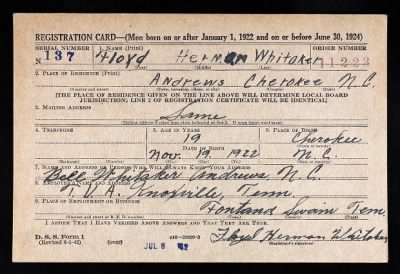 REGISTRATION CARD—(Men born on or after January 1, 1922 and on or before June 30, 1924)
SERIAL NUMBER 1. NAME (Print) ORDER NUMBER
N 137 Floyd Herman Whitaker 11223
(First) (Middle) (Last)
2. PLACE OF RESIDENCE (Print)
Andrews Cherokee N.C.
(Number and street) (Town, township, village, or city) (County) (State)
[THE PLACE OF RESIDENCE GIVEN ON THE LINE ABOVE WILL DETERMINE LOCAL BOARD
JURISDICTION; LINE 2 OF REGISTRATION CERTIFICATE WILL BE IDENTICAL]
3. MAILING ADDRESS
Same
4. TELEPHONE 5. AGE IN YEARS 6. PLACE OF BIRTH
19 Cherokee
DATE OF BIRTH
Nov. 19 1922 N.C.
7. NAME AND ADDRESS OF PERSON WHO WILL ALWAYS KNOW YOUR ADDRESS
Bell Whitaker Andrews N.C.
8. EMPLOYER'S NAME AND ADDRESS
T.V.A. Knoxville, Tenn
9. PLACE OF EMPLOYMENT OR BUSINESS
Fontana Swain Tenn.
I AFFIRM THAT I HAVE VERIFIED ABOVE ANSWERS AND THAT THEY ARE TRUE.
D. S. S. Form 1
(Revised 6-9-42) (over) Floyd Herman Whitaker
JUL 8 42 (Registrant's signature)